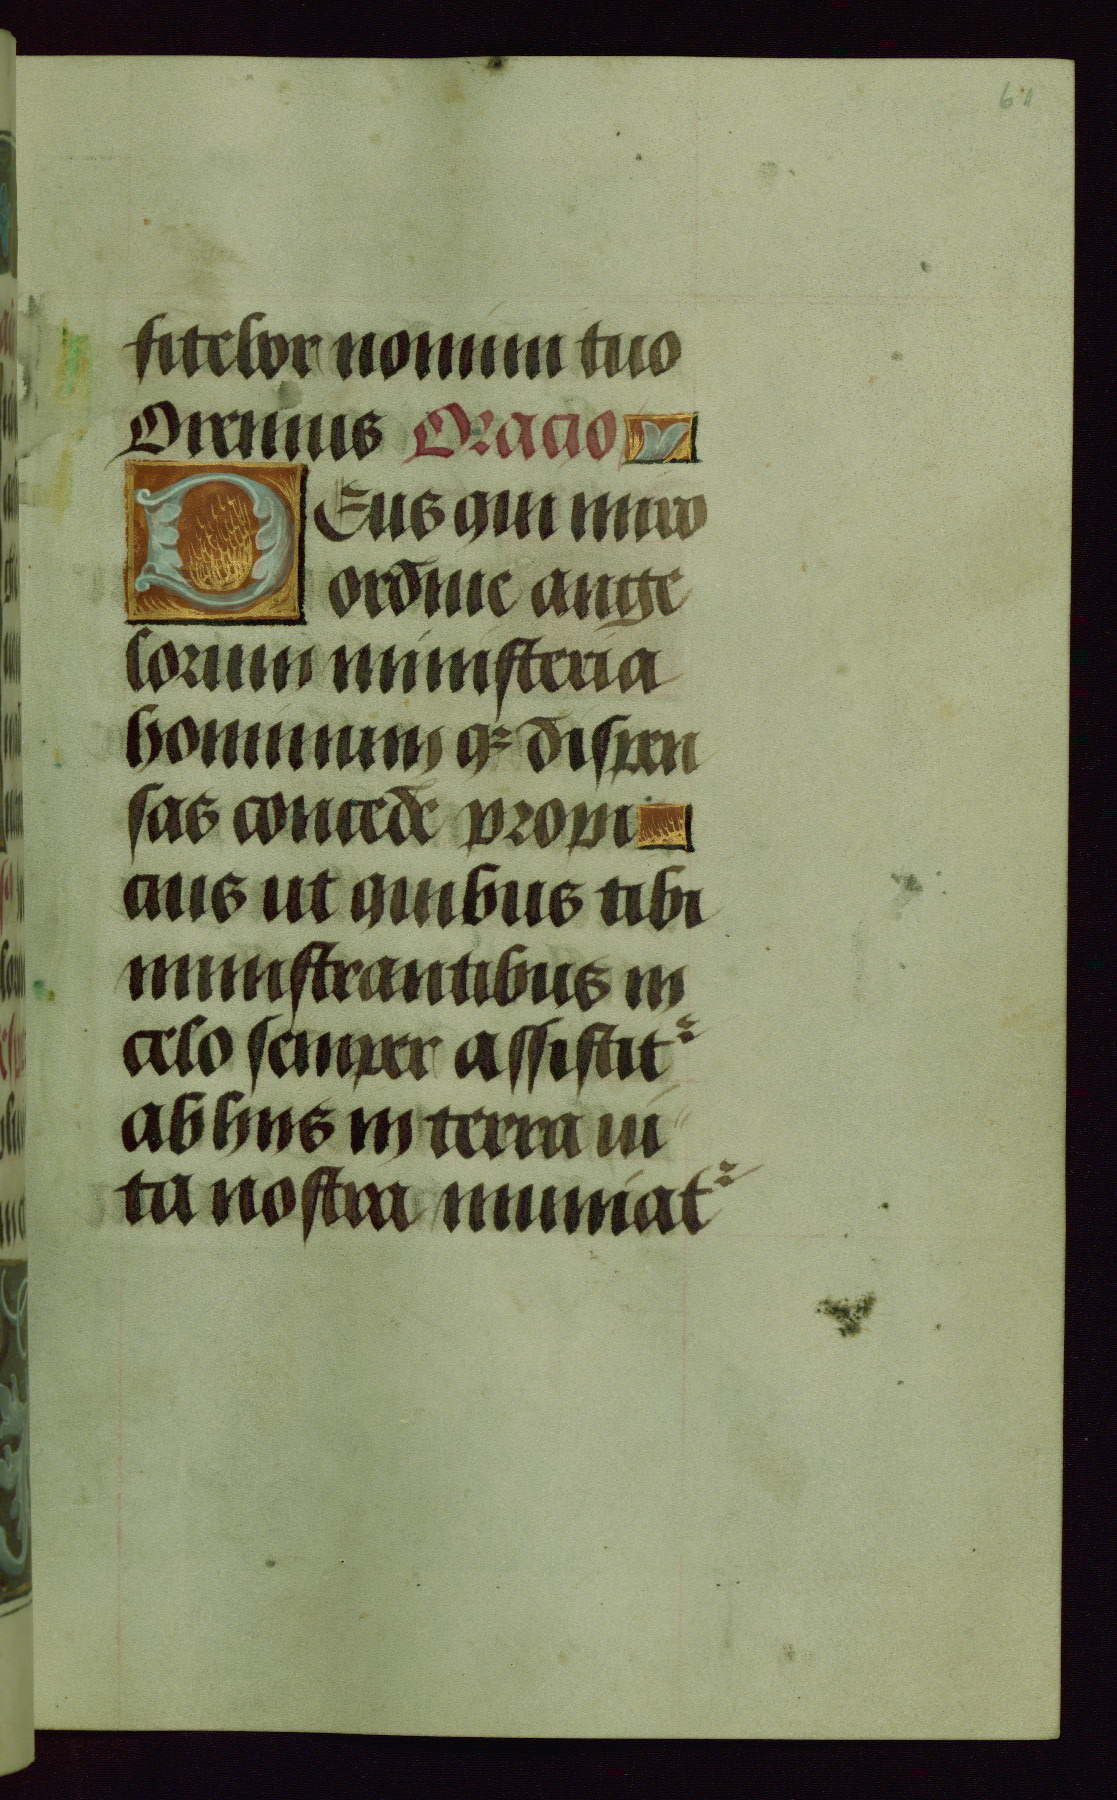 fitebor nomini tuo
Oremus Oracio
DEus qui miro
ordine ange
lorum ministeria
hominum qꝫ dispen
sas concede propi
cius ut quibus tibi
ministrantibus in
celo semper assistit᷑
ab hiis in terra ui
ta nostra muniat᷑